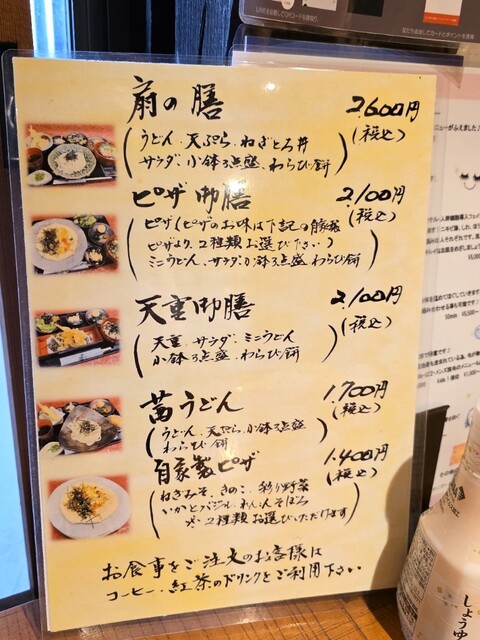 扇の膳 2,600円
(税込)
(うどん、天ぷら、ねぎとろ丼
サラダ、小鉢3点盛、わらび餅)
ピザ御膳 2,100円
(税込)
(ピザ(ピザのお味は下記の自家製
ピザより、2種類お選び下さい)
ミニうどん、サラダ、小鉢3点盛、わらび餅)
天重御膳 2,100円
(税込)
(天重、サラダ、ミニうどん
小鉢3点盛、わらび餅)
茜うどん 1,700円
(税込)
(うどん、天ぷら、小鉢3点盛
わらび餅)
自家製ピザ 1,400円
(税込)
(ねぎみそ、きのこ、彩り野菜
いかとバジル、れんこんそぼろ
※2種類お選びいただけます)
お食事をご注文のお客様は
コーヒー・紅茶のドリンクをご利用下さい
しょうゆ